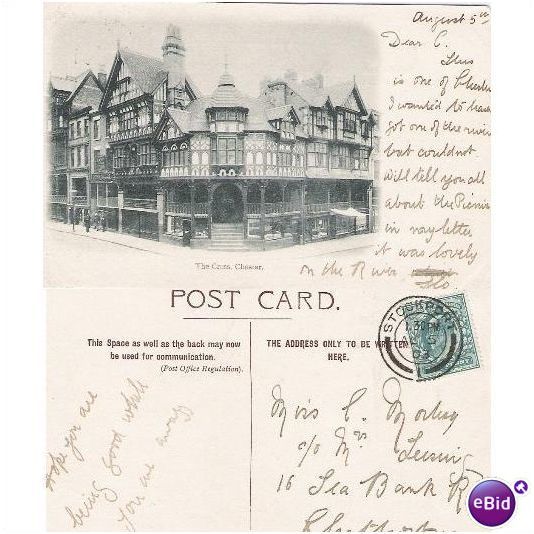 August 5th
Dear C.
This
is one of Chester
I wanted to have
got one of the river
but couldnot
will tell you all
about the Picnic
in my letter
it was lovely
on the River
The Cross, Chester.
POST CARD.
This Space as well as the back may now
be used for communication.
(Post Office Regulation).
THE ADDRESS ONLY TO BE WRITTEN
HERE.
STOCKPORT
1.30PM
AU 5
Hope you are
being good while
you are away
Miss C. Morley
c/o Mrs
16 Sea Bank R
eBid